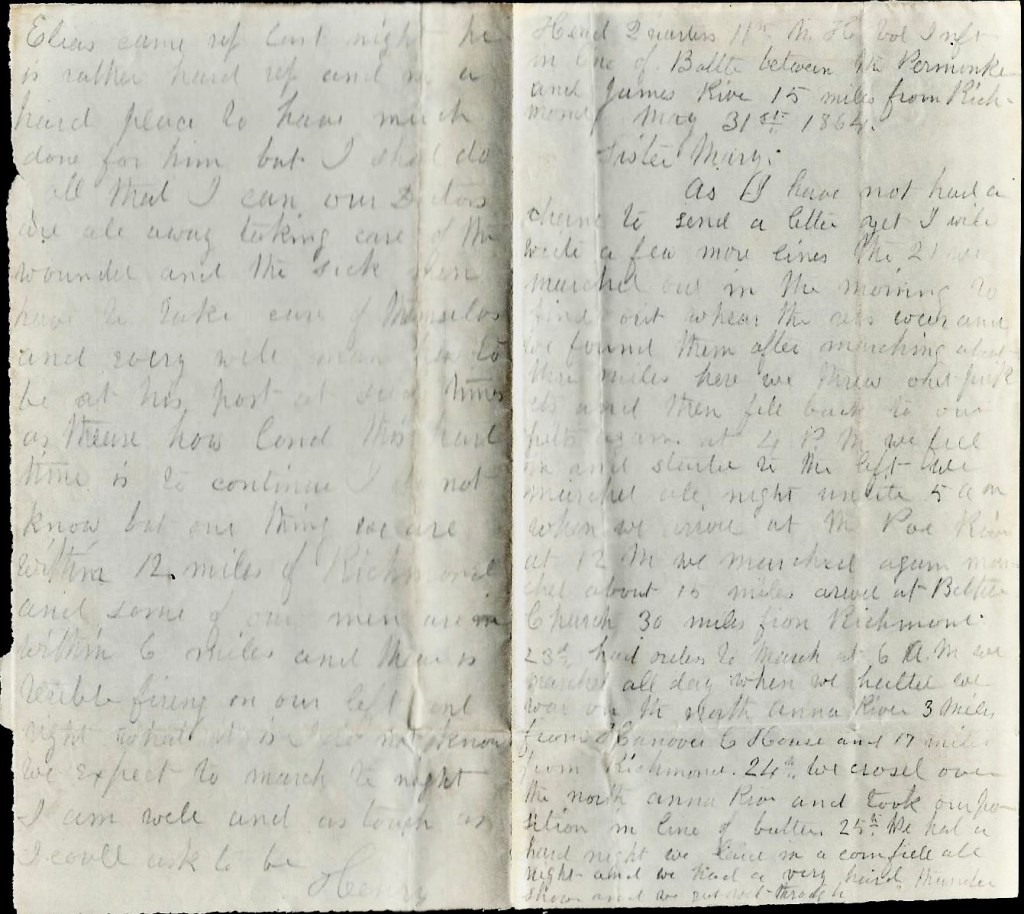 Head Quarters 11th N. H. Vol Inft
in line of Battle between the Permonke
and James Rive 15 miles from Rich-
mond May 31st 1864.
Sister Mary:
As I have not had a
chanc to send a letter yet I will
write a few more lines the 21 we
marched out in the morning to
find out whear the rebs wear and
we found them after marching about
three miles here we threw out pick
ets and then fell back to our
pits again at 4 P. M we fell
in and started to the left we
marched all night untill 5 a m
when we arive at the Poe River
at 12 M we marched again mar
ched about 15 miles arived at Bethel
Church 30 miles from Richmond.
23d had orders to March at 6 A. M we
marched all day when we halted we
was on the north anna River 3 miles
from Hanover C House and 17 miles
from Richmond. 24th. We crosed over
the north anna Rive and took our po-
sition in line of battle. 25th We had a
hard night we laid in a cornfield all
night and we had a very hard thunder
showe and we got wet through
Elias came up last night he
is rather hard up and in a
hard place to have much
done for him but I shal do
all that I can our Doctors
are all away taking care of the
wounded and the sick men
have to take care of themselvs
and every well man has to
be at his post at such times
as theuse how lond this hard
time is to continue I do not
know but one thing we are
within 12 miles of Richmond
and some of our men are in
within 6 miles and thear is
terible fireng on our left and
right what it is I do not know
we expect to march to night
I am well and as tough as
I coull ask to be
Henry